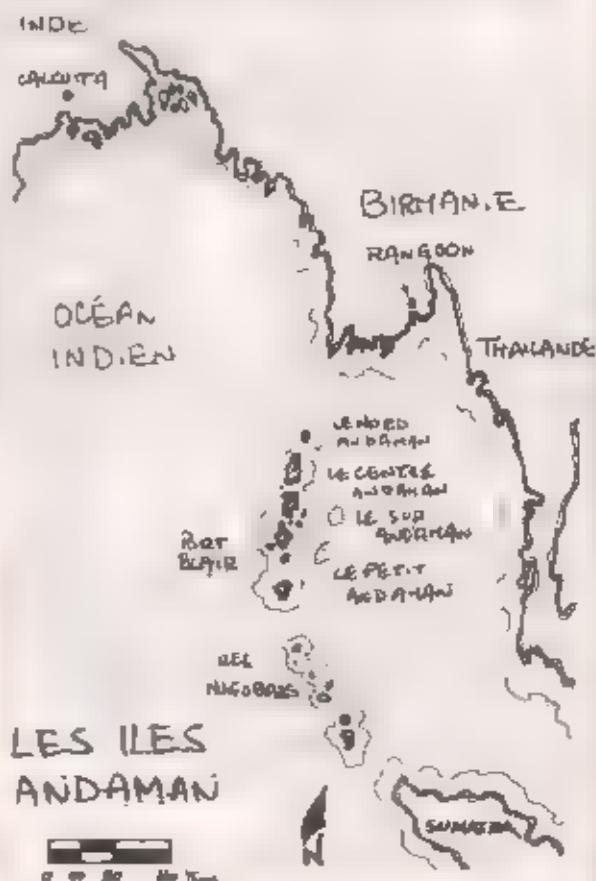 INDE
CALCUTTA
BIRMANIE
RANGOON
OCÉAN
INDIEN
THAILANDE
LE NORD
ANDAMAN
LE CENTRE
ANDAMAN
LE SUD
ANDAMAN
PORT
BLAIR
LE PETIT
ANDAMAN
NICOBARS
LES ILES
ANDAMAN
SUMATRA
N